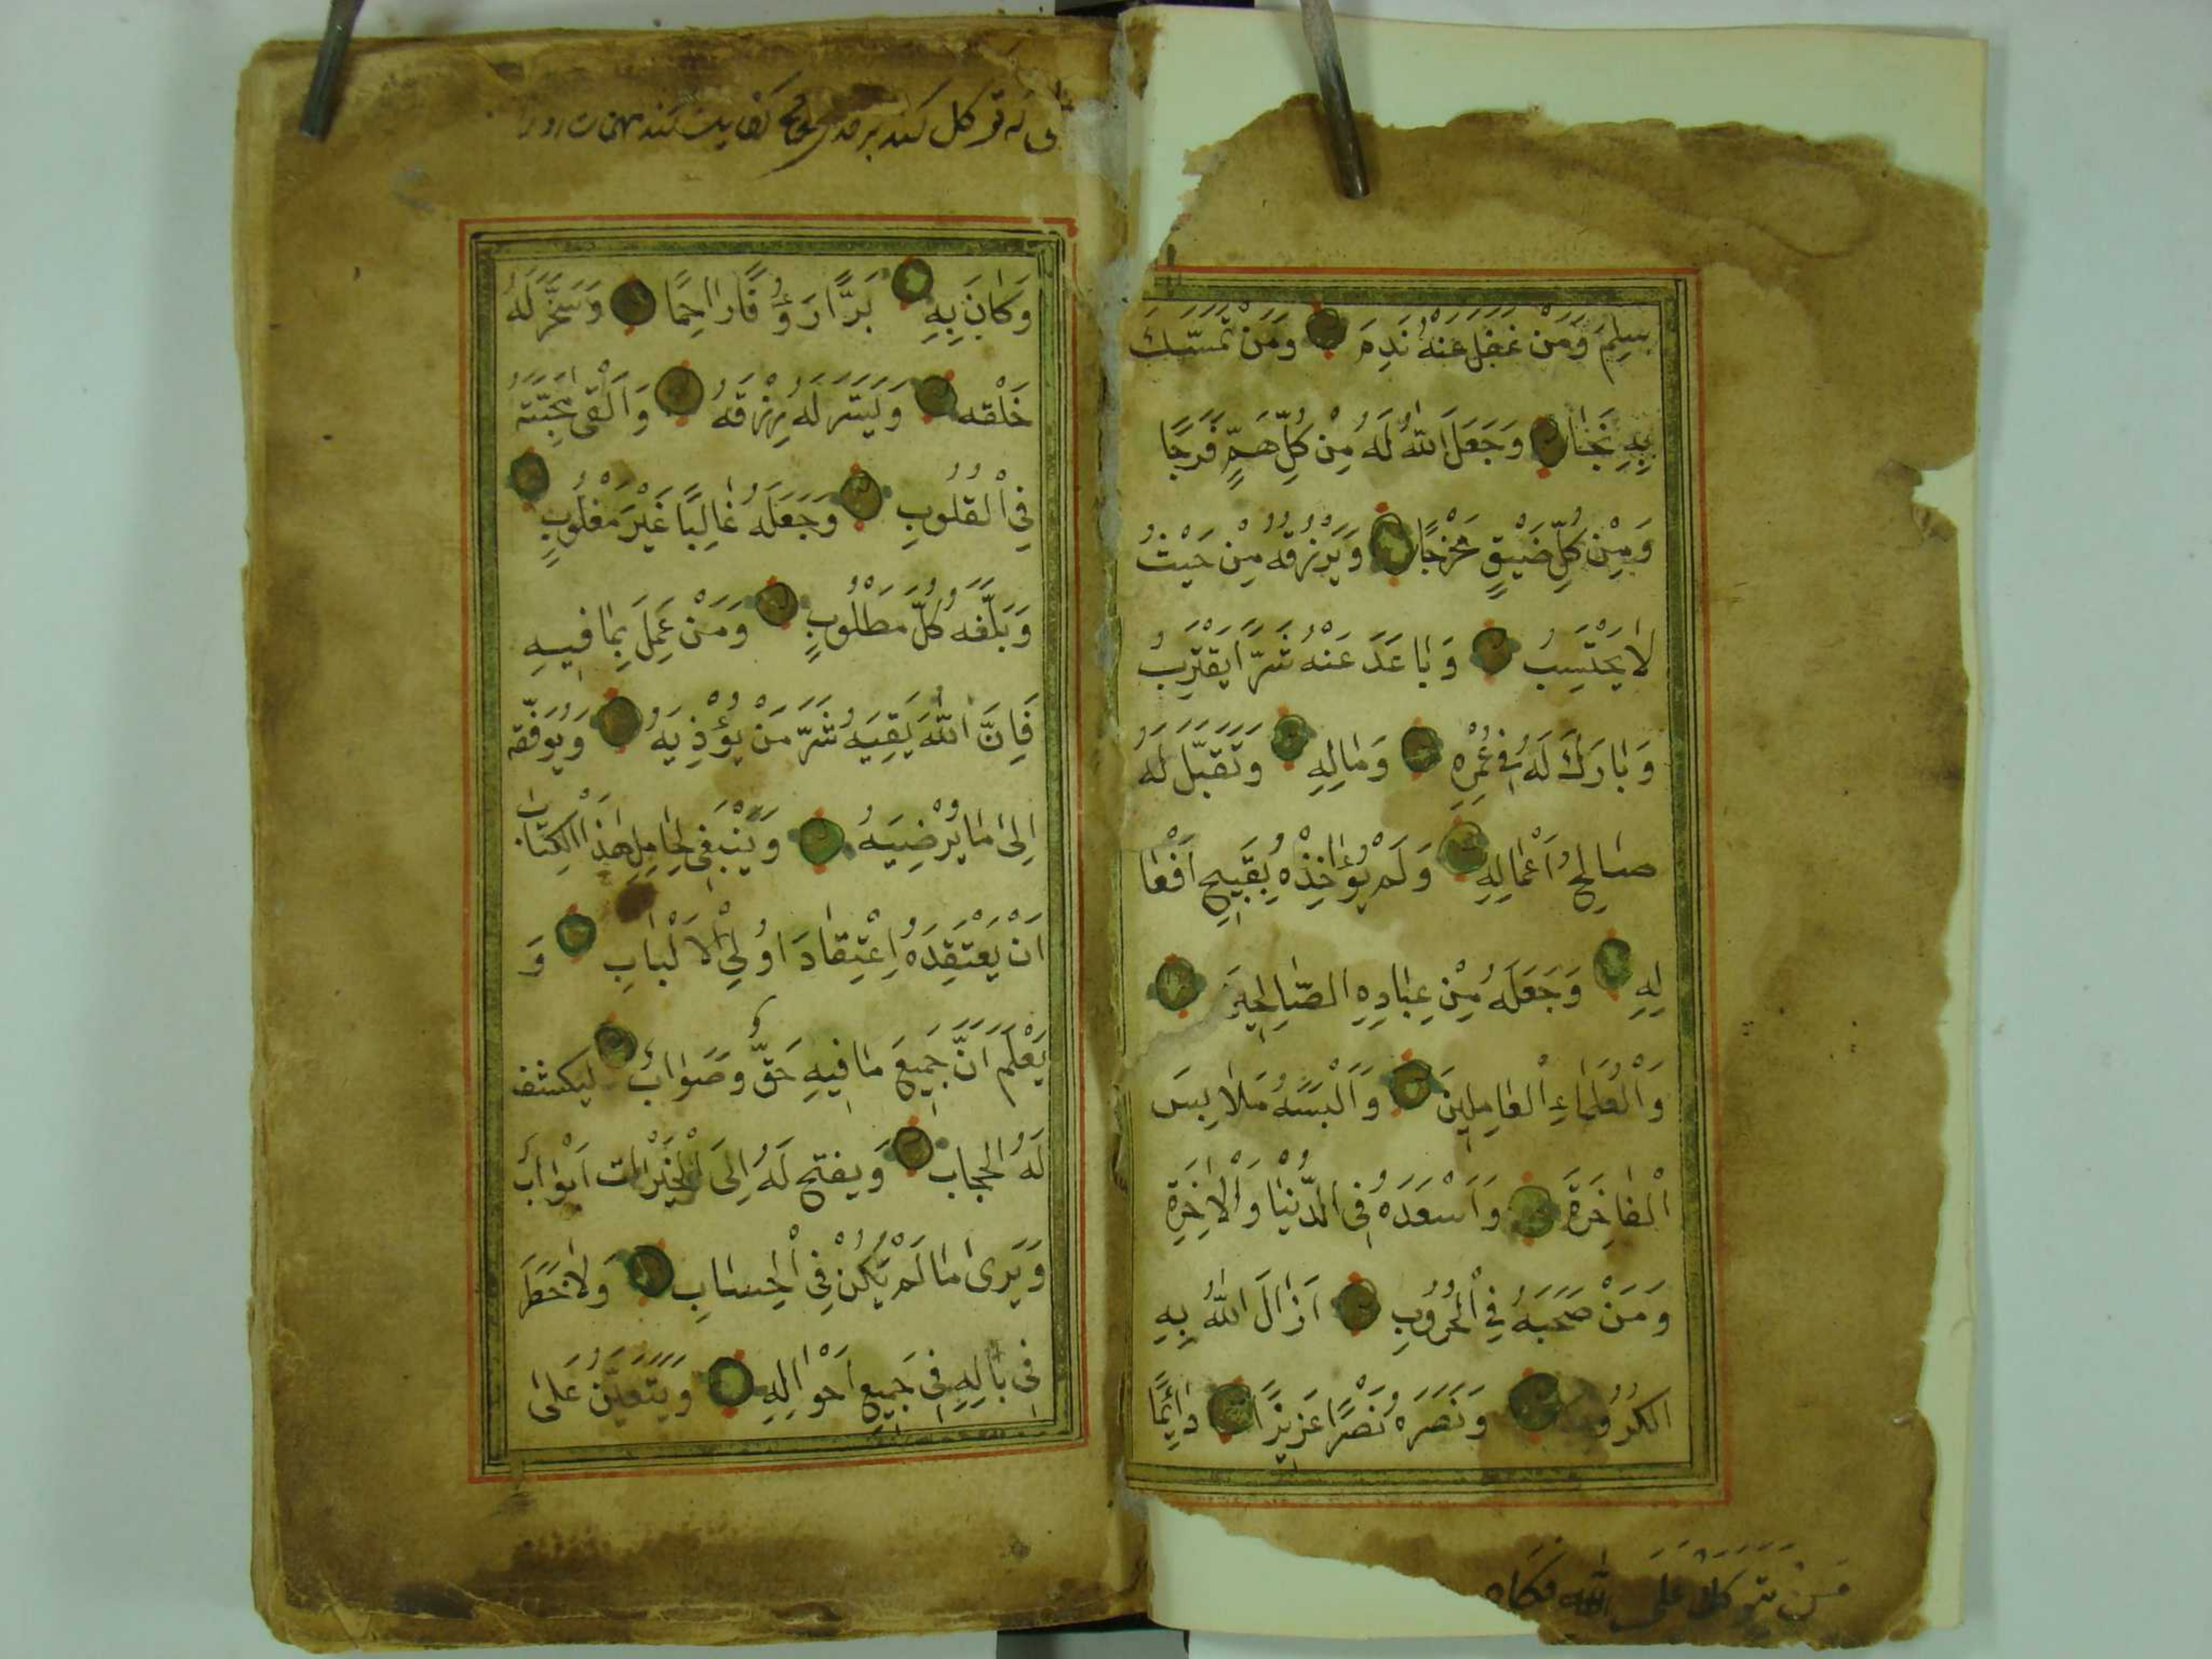 سَلِمَ وَمَنْ غَفَلَ عَنْهُ نَدِمَ وَمَنْ تَمَسَّكَ
بِهِ نَجَا وَجَعَلَ اللّٰهُ لَهُ مِنْ كُلِّ هَمٍّ فَرَجًا
وَمِنْ كُلِّ ضَيْقٍ مَخْرَجًا وَيَرْزُقُهُ مِنْ حَيْثُ
لَا يَحْتَسِبُ وَبَاعَدَ عَنْهُ شَرًّا يَقْتَرِبُ
وَبَارَكَ لَهُ فِي عُمْرِهِ وَمَالِهِ وَتَقَبَّلَ لَهُ
صَالِحَ اَعْمَالِهِ وَلَمْ يُؤَاخِذْهُ بِقَبِيحِ اَفْعَا
لِهِ وَجَعَلَهُ مِنْ عِبَادِهِ الصَّالِحِينَ
وَالْعُلَمَاءِ الْعَامِلِينَ وَاَلْبَسَهُ مَلَابِسَ
الْفَاخِرَةَ وَاَسْعَدَهُ فِي الدُّنْيَا وَالْاٰخِرَةِ
وَمَنْ صَحَبَهُ فِي الْحُرُوبِ اَزَالَ اللّٰهُ بِهِ
الكُرُوبَ وَنَصَرَهُ نَصْرًا عَزِيزًا دَائِمًا
مَنْ يتوكل على الله فكفاه
كند بر خدای
وَكَانَ بِهِ بَرًّا رَؤُفًا رَاحِمًا وَسَخَّرَ لَهُ
خَلْقَه وَيَسَّرَ لَهُ رِزْقَهُ وَاَلْقَى مَحَبَّتَهُ
فِي الْقُلُوبِ وَجَعَلَهُ غَالِبًا غَيْرَ مَغْلُوبٍ
وَبَلَّغَهُ كُلَّ مَطْلُوبٍ وَمَنْ عَمِلَ بِمَا فِيهِ
فَاِنَّ اللّٰهَ يَقِيَهُ شَرَّ مَنْ يُؤْذِيَهُ وَيُوَفِّقه
اِلَى مَا يُرْضِيَهُ وَيَنْبَغِى لِحَامِلِ هٰذَا الْكِتَابِ
اَنْ يَعْتَقِدَهُ اِعْتِقَادَ اُولِي الْاَلْبَابِ وَ
يَعْلَمَ اَنَّ جَمِيعَ مَا فِيهِ حَقٌّ وَصَوَابٌ لِيَكشف
لَهُ الحجاب وَيفتح لَهُ اِلَى الْخَيْرَات اَبْوَابَ
وَيَرَى مَا لَمْ يَكُنْ فِي الْحِسَابِ وَلَاحَظَ
فِي بَالِهِ فِي جَمِيعِ اَحْوَالِهِ وَيَتَعَيَّنُ عَلَى